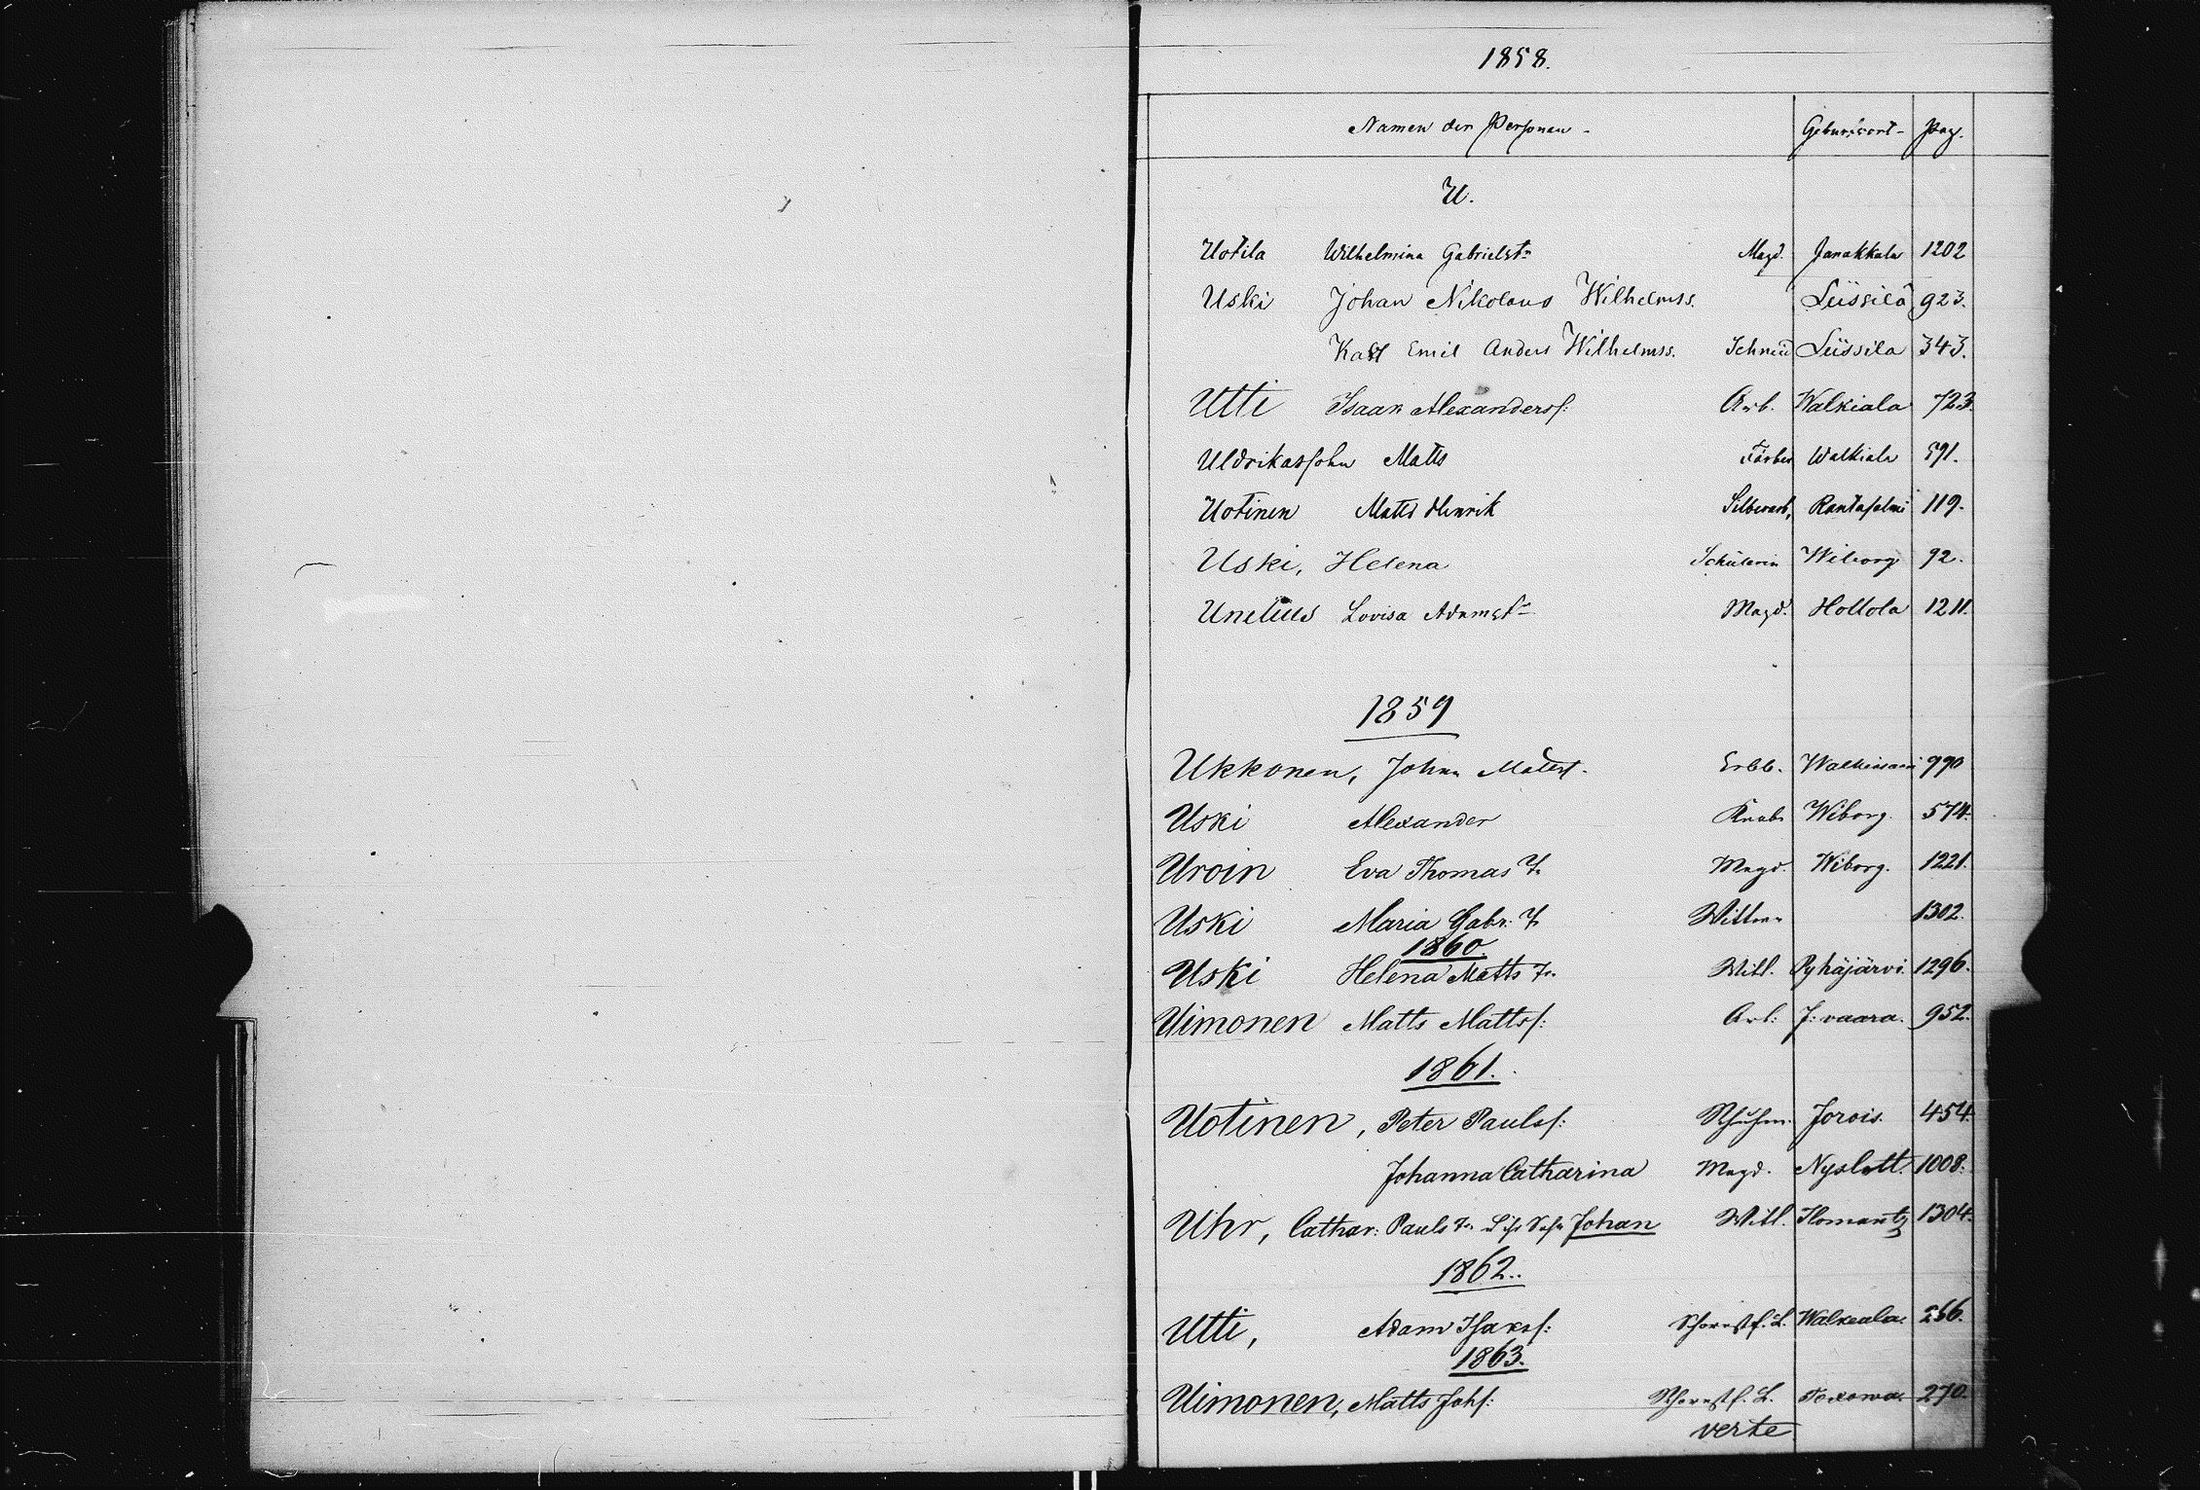 1858.
Namen der Personen - Geburtsort - Pag.
U.
Uotila Wilhelmina Gabrielstr Magd. Janakkala 1202
Uski Johan Nikolaus Wilhelmss. Liissilä 923.
Karl Emil Anders Wilhelmss. Schneid Liissila 343.
Utti Isaak Alexanders: Arb. Walkiala 723.
Uldrikassohn Matts Färber Walkiala 591.
Uotinen Matts Henrik Silberarb, Rantasalmi 119.
Uski, Helena Schülerin Wiborg 92.
Unelius Lovisa Adamstr Magd. Hollola 1211.
1859
Ukkonen, Johan Matts. Walkiasaari 990
Uski Alexander Knabe Wiborg. 574.
Uroin Eva Thomas Tr. Magd. Wiborg. 1221.
Uski Maria Gabr. Tr. Wittwe 1302.
1860.
Uski Helena Matts Tr. Witt. Pyhäjärvi. 1296.
Uimonen Matts Mattss: Arb: J: vaara. 952.
1861.
Uotinen, Peter Paulss: Schuhm. Jorois. 454.
Johanna Catharina Magd. Nyslott. 1008.
Uhr, Cathar: Pauls Tr. Johan Witt. Ilomantz 1304.
1862.
Utti, Adam Isakss: Schornstf. L. Walkeala. 266.
1863.
Uimonen, Matts Johs: Schornstf. L. Toxowa. 270.
verte